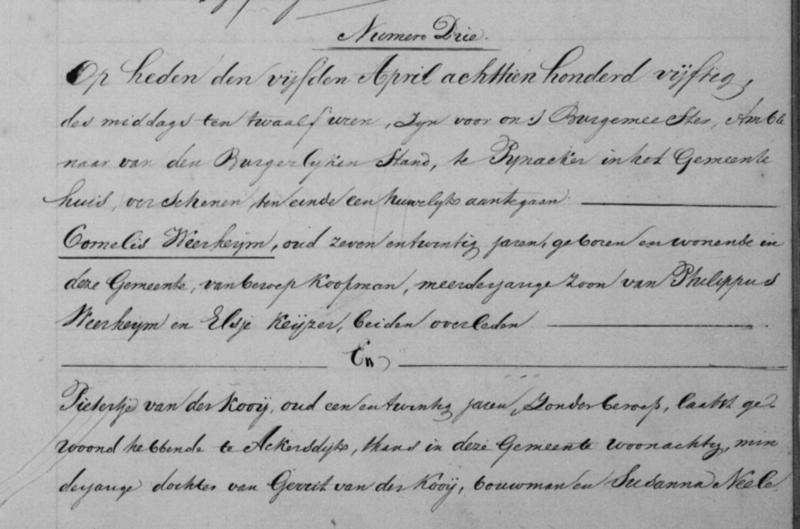 Numero Drie.
Op heden den vijfden April achttien honderd vijftig,
des middags ten twaalf uren, zyn voor ons Burgemeester, Ambte
naar van den Burgerlyken Stand, te Pynacker in het Gemeente
huis, verschenen, ten einde een huwelyk aantegaan
Cornelis Weerheym, oud zeven entwintig jaren, geboren en wonende in
deze Gemeente, van beroep Koopman, meerderjarige zoon van Philippus
Weerheym en Elsje Keijzer, beiden overleden
En
Pietertje van der Kooij, oud een entwintig jaren, zonder beroep, laatst ge-
woond hebbende te Ackersdijk, thans in deze Gemeente woonachtig, min
derjarige dochter van Gerrit van der Kooij, bouwman en Susanna Neele